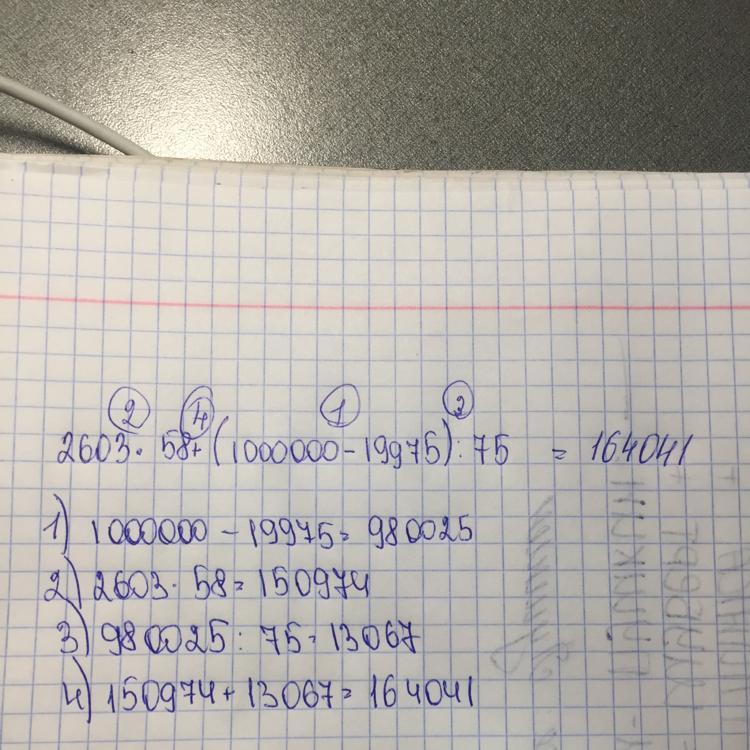 ② ④ ① ③
2603· 58+(1000000-19975):75 = 164041
1) 1000000-19975=980025
2) 2603·58=150974
3) 980025:75=13067
4) 150974+13067=164041